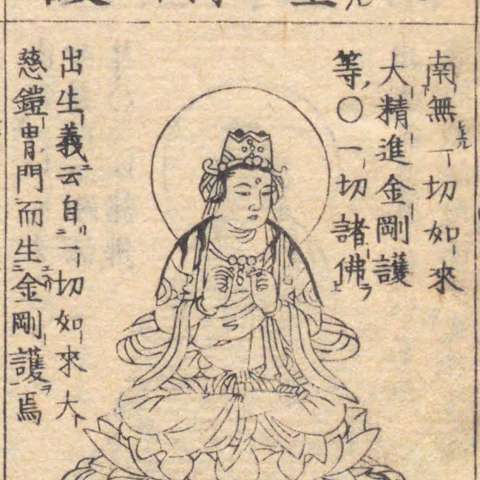 南無一切如來
大精進金剛護
等○一切諸佛
出生義云自一切如來大
慈鎧冑門而生金剛護焉